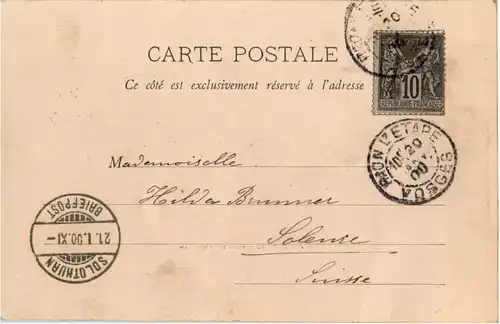 CARTE POSTALE
Ce côté est exclusivement réservé à l'adresse
10
REPUBLIQUE FRANÇAISE
RAON L'ETAPE
20
JANV.
00
VOSGES
Mademoiselle
Hilda Brunner
Soleure
Suisse
SOLOTHURN
21.I.00.XI-
BRIEFPOST